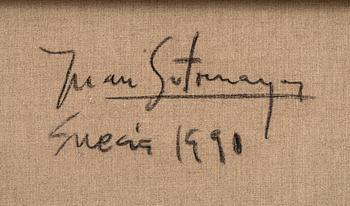 Juan Sotomayor
Suecia 1990